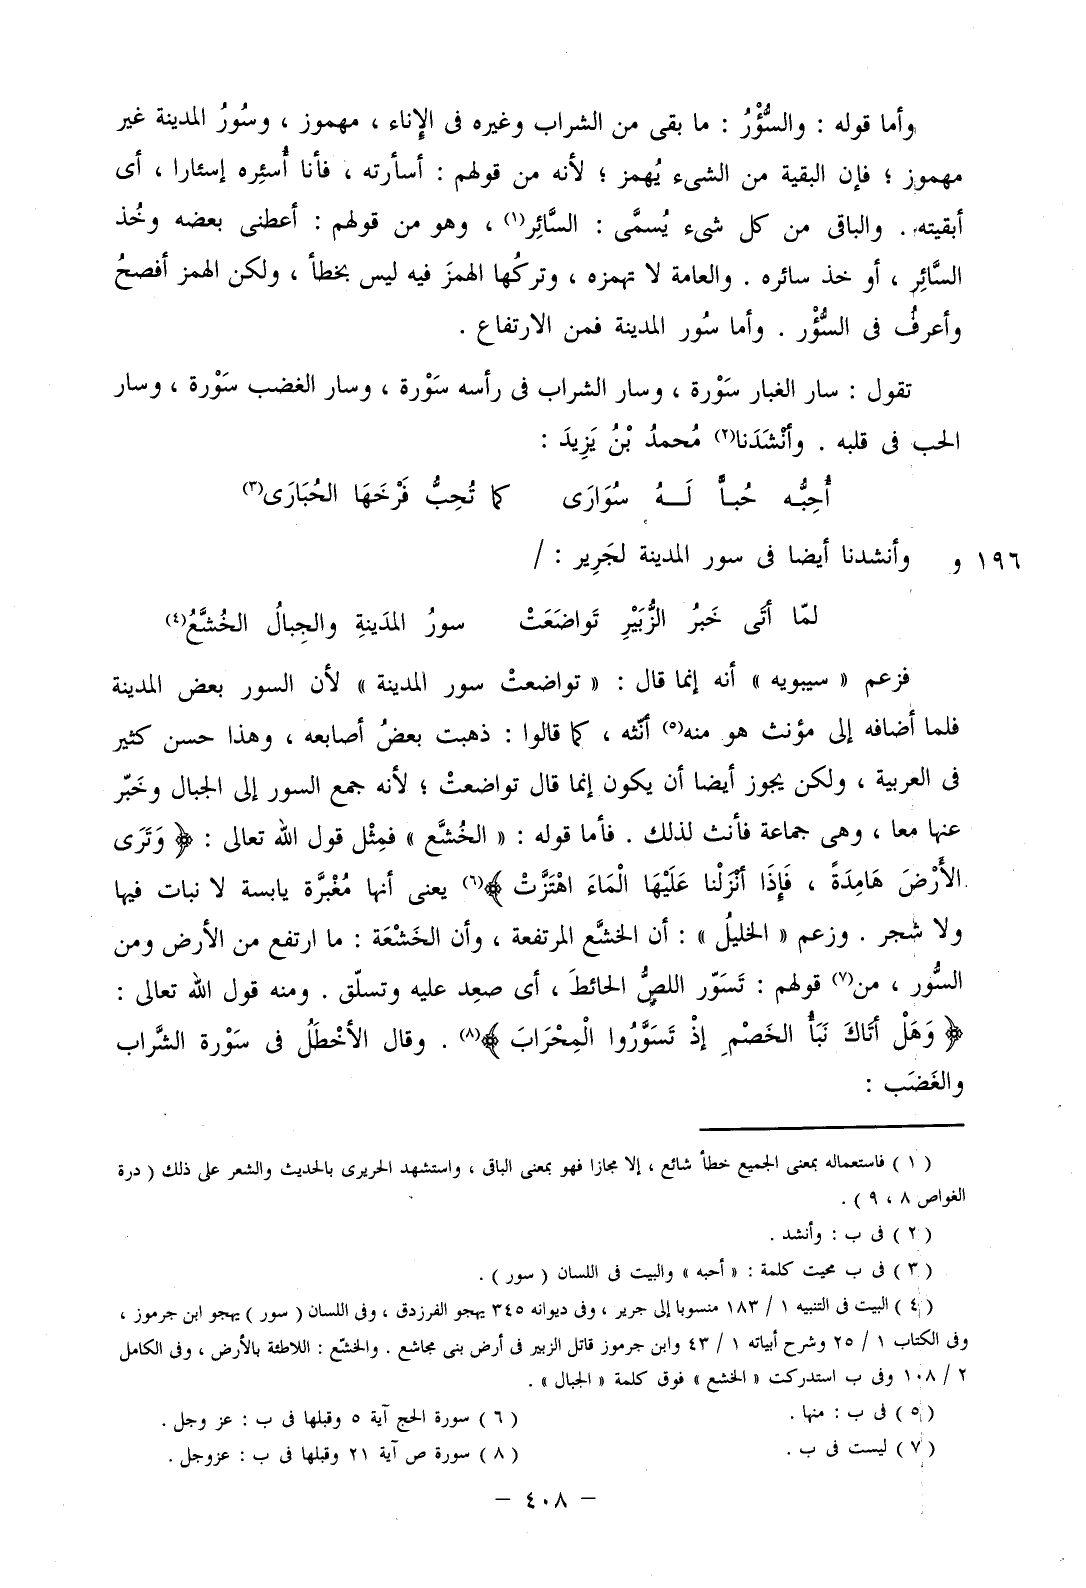 وأما قوله : والسُّؤْرُ : ما بقى من الشراب وغيره فى الإِناء ، مهموز ، وسُورُ المدينة غير
مهموز ؛ فإن البقية من الشىء يُهمز ؛ لأنه من قولهم : أسأرته ، فأنا أُسئِره إسئارا ، أى
أبقيته . والباقى من كل شىء يُسمَّى : السَّائِر(١) ، وهو من قولهم : أعطنى بعضه وخُذ
السَّائِر ، أو خذ سائره . والعامة لا تهمزه ، وتركُها الهمزَ فيه ليس بخطأ ، ولكن الهمز أفصحُ
وأعرفُ فى السُّؤْر . وأما سُور المدينة فمن الارتفاع .
تقول : سار الغبار سَوْرة ، وسار الشراب فى رأسه سَوْرة ، وسار الغضب سَوْرة ، وسار
الحب فى قلبه . وأنْشَدَنا(٢) مُحمدُ بْنُ يَزِيدَ :
أُحِبُّه حُبـاًّ لَـــهُ سُوَارَى كما تُحِبُّ فَرْخَهَا الحُبَارَى(٣)
١٩٦ و وأنشدنا أيضا فى سور المدينة لجَرِير : /
لمّا أتَى خَبرُ الزُّبَيْرِ تَواضَعَتْ سورُ المدَينةِ والجِبالُ الخُشَّعُ(٤)
فزعم « سيبويه » أنه إنما قال : « تواضعتْ سور المدينة » لأن السور بعض المدينة
فلما أضافه إلى مؤنث هو منه(٥) أنّثه ، كما قالوا : ذهبت بعضُ أصابعه ، وهذا حسن كثير
فى العربية ، ولكن يجوز أيضا أن يكون إنما قال تواضعتْ ؛ لأنه جمع السور إلى الجبال وخَبّر
عنها معا ، وهى جماعة فأنث لذلك . فأما قوله : « الخُشَّع » فمِثْل قول الله تعالى : ﴿ وَتَرَى
الأَرْضَ هَامِدَةً ، فَإِذَا أنْزَلْنا عَلَيْهَا الْمَاءَ اهْتَزَّتْ ﴾(٦) يعنى أنها مُغْبرَّة يابسة لا نبات فيها
ولا شجر . وزعم « الخليلُ » : أن الخشَّع المرتفعة ، وأن الخَشْعَة : ما ارتفع من الأرض ومن
السُّور ، من(٧) قولهم : تَسَوّر اللصُّ الحائطَ ، أى صعِد عليه وتسلّق . ومنه قول الله تعالى :
﴿ وَهَلْ أتَاكَ نَبَأُ الخَصْمِ إذْ تَسَوَّرُوا الْمِحْرَابَ ﴾(٨) . وقال الأخْطَلُ فى سَوْرة الشَّراب
والغَضَب :
( ١ ) فاستعماله بمعنى الجميع خطأ شائع ، إلا مجازا فهو بمعنى الباقى ، واستشهد الحريرى بالحديث والشعر على ذلك ( درة
الغواص ٨ ، ٩ ) .
( ٢ ) فى ب : وأنشد .
( ٣ ) فى ب محيت كلمة : « أحبه » والبيت فى اللسان ( سور ) .
( ٤ ) البيت فى التنبيه ١ / ١٨٣ منسوبا إلى جرير ، وفى ديوانه ٣٤٥ يهجو الفرزدق ، وفى اللسان ( سور ) يهجو ابن جرموز ،
وفى الكتاب ١ / ٢٥ وشرح أبياته ١ / ٤٣ وابن جرموز قاتل الزبير فى أرض بنى مجاشع . والخشّع : اللاطئة بالأرض ، وفى الكامل
٢ / ١٠٨ وفى ب استدركت « الخشع » فوق كلمة « الجبال » .
( ٥ ) فى ب : منها . ( ٦ ) سورة الحج آية ٥ وقبلها فى ب : عز وجل .
( ٧ ) ليست فى ب . ( ٨ ) سورة ص آية ٢١ وقبلها فى ب : عزوجل .
– ٤٠٨ –